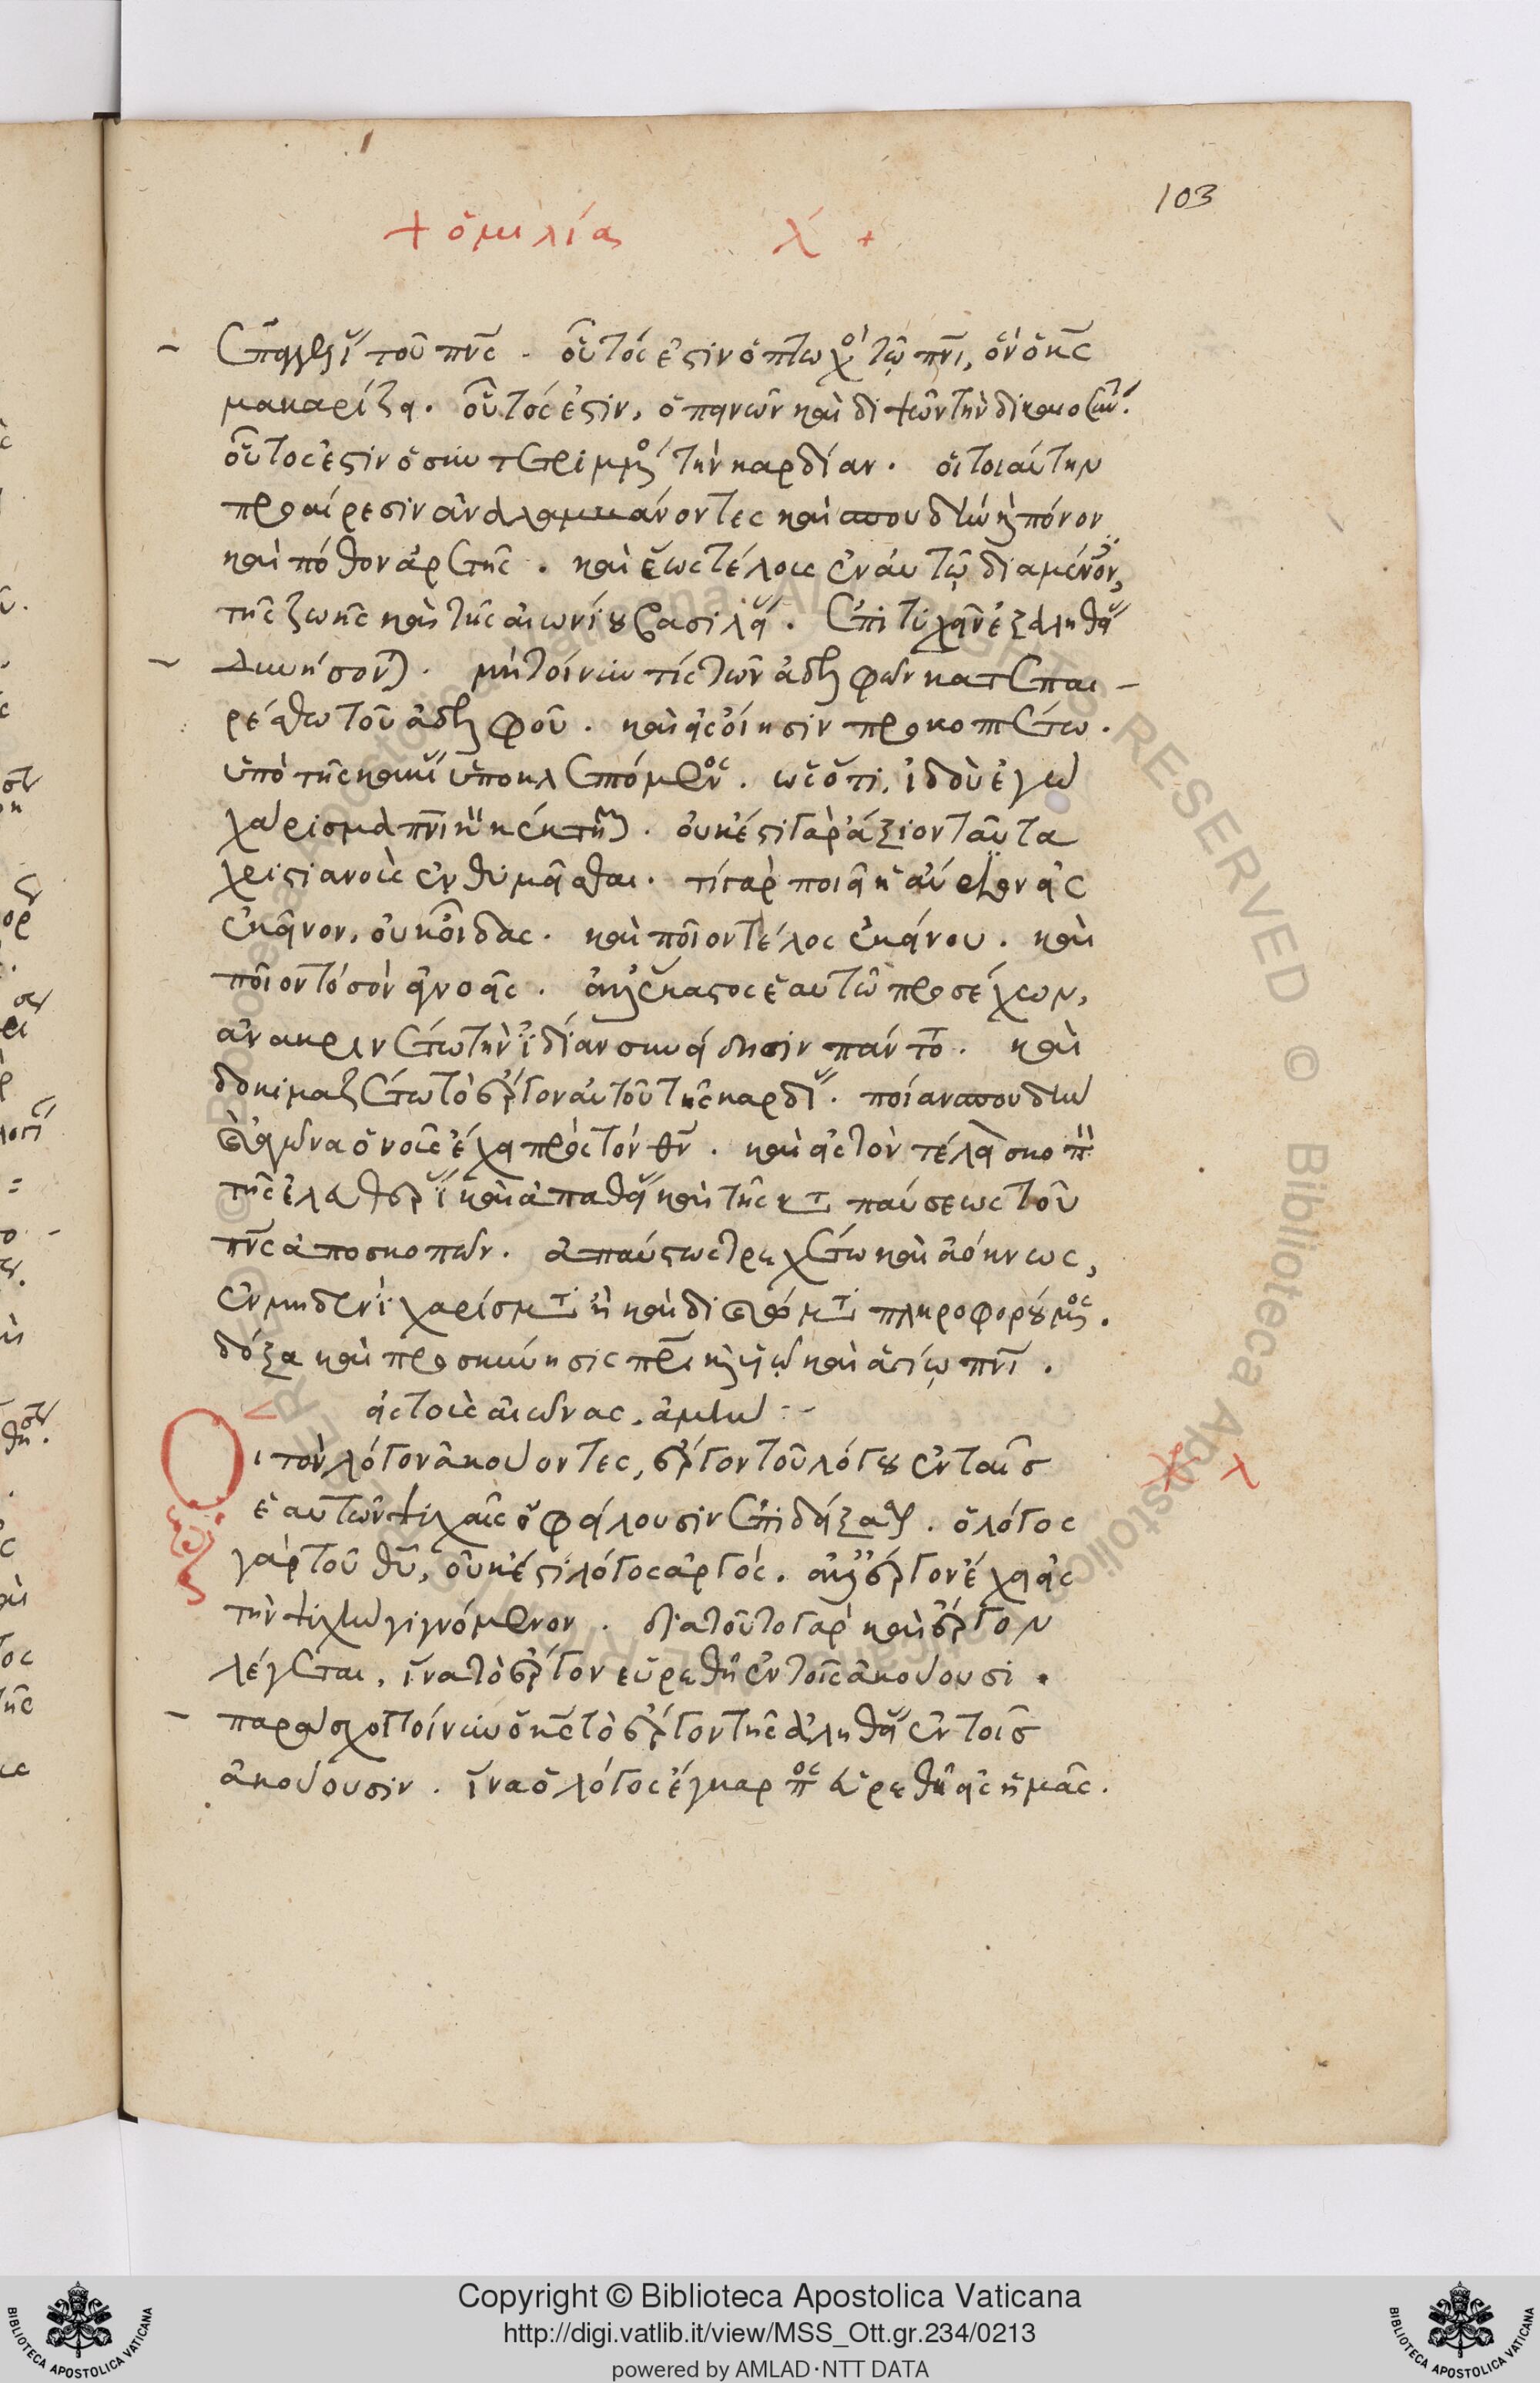 103
+ ὁμιλίας λ +
ἐπαγγελίας τοῦ πνς. οὗτός ἐστιν ὁ πτωχὸς τῷ πνι, ὃν ὁ κς
μακαρίζει. οὗτός ἐστιν, ὁ πεινῶν καὶ διψῶν τὴν δικαιοσύνην.
οὗτος ἐστιν ὁ συντετριμμένος τὴν καρδίαν. οἱ τοιαύτην
προαίρεσιν ἀναλαμβάνοντες καὶ σπουδὴν καὶ πόνον
καὶ πόθον ἀρετῆς. καὶ ἕως τέλους ἐν αὐτῷ διαμένοντες,
τῆς ζωῆς καὶ τῆς αἰωνίου βασιλείας. ἐπιτυχεῖν ἐξ ἀληθείας
δυνήσονται. μὴ τοίνυν τίς τῶν ἀδελφῶν κατεπαι-
ρέσθω τοῦ ἀδελφοῦ. καὶ εἰς οἴησιν προκοπτέτω.
ὑπὸ τῆς κακίας ὑποκλεπτόμενος. ὡς ὅτι, ἰδοὺ ἐγὼ
χάρισμα πνικὸν κέκτημαι. οὐκ ἔστι γὰρ ἄξιον ταῦτα
χριστιανοὺς ἐνθυμεῖσθαι. τί γὰρ ποιεῖ ἡ αὔριον εἰς
ἐκεῖνον, οὐκ οἶδας. καὶ ποῖον τέλος ἐκείνου. καὶ
ποῖον τὸ σὸν ἀγνοεῖς. ἀλλ' ἕκαστος ἑαυτῷ προσέχων,
ἀνακρινέτω τὴν ἰδίαν συνείδησιν πάντοτε. καὶ
δοκιμαζέτω τὸ ἔργον αὐτοῦ τῆς καρδίας. ποίαν σπουδὴν
καὶ ἀγῶνα ὁ νοῦς ἔχει πρὸς τὸν θν. καὶ εἰς τὸν τέλειον σκοπὸν
τῆς ἐλευθερίας καὶ ἀπαθείας καὶ τῆς καταπαύσεως τοῦ
πνς ἀποσκοπῶν. ἀπαύστως τρεχέτω καὶ ἀόκνως,
ἐν μηδενὶ χαρίσματι ἢ καὶ δικαιώματι πληροφορούμενος.
δόξα καὶ προσκύνησις πρι καὶ υἱῷ καὶ ἁγίῳ πνι.
εἰς τοὺς αἰῶνας, ἀμήν:-
Οἱ τὸν λόγον ἀκούοντες, ἔργον τοῦ λόγου ἐν ταῖς
ἑαυτῶν ψυχαῖς ὀφείλουσιν ἐπιδείξασθαι. ὁ λόγος
γὰρ τοῦ θυ, οὐκ ἔστι λόγος ἀργός. ἀλλ' ἔργον ἔχει εἰς
τὴν ψυχὴν γιγνόμενον. διὰ τοῦτο γὰρ καὶ ἔργον
λέγεται, ἵνα τὸ ἔργον εὑρεθῇ ἐν τοῖς ἀκούουσι.
παράσχοι τοίνυν ὁ κς τὸ ἔργον τῆς ἀληθείας ἐν τοῖς
ἀκούουσιν. ἵνα ὁ λόγος ἔγκαρπος εὑρεθῇ εἰς ἡμᾶς.
λ
Copyright © Biblioteca Apostolica Vaticana
http://digi.vatlib.it/view/MSS_Ott.gr.234/0213
powered by AMLAD·NTT DATA